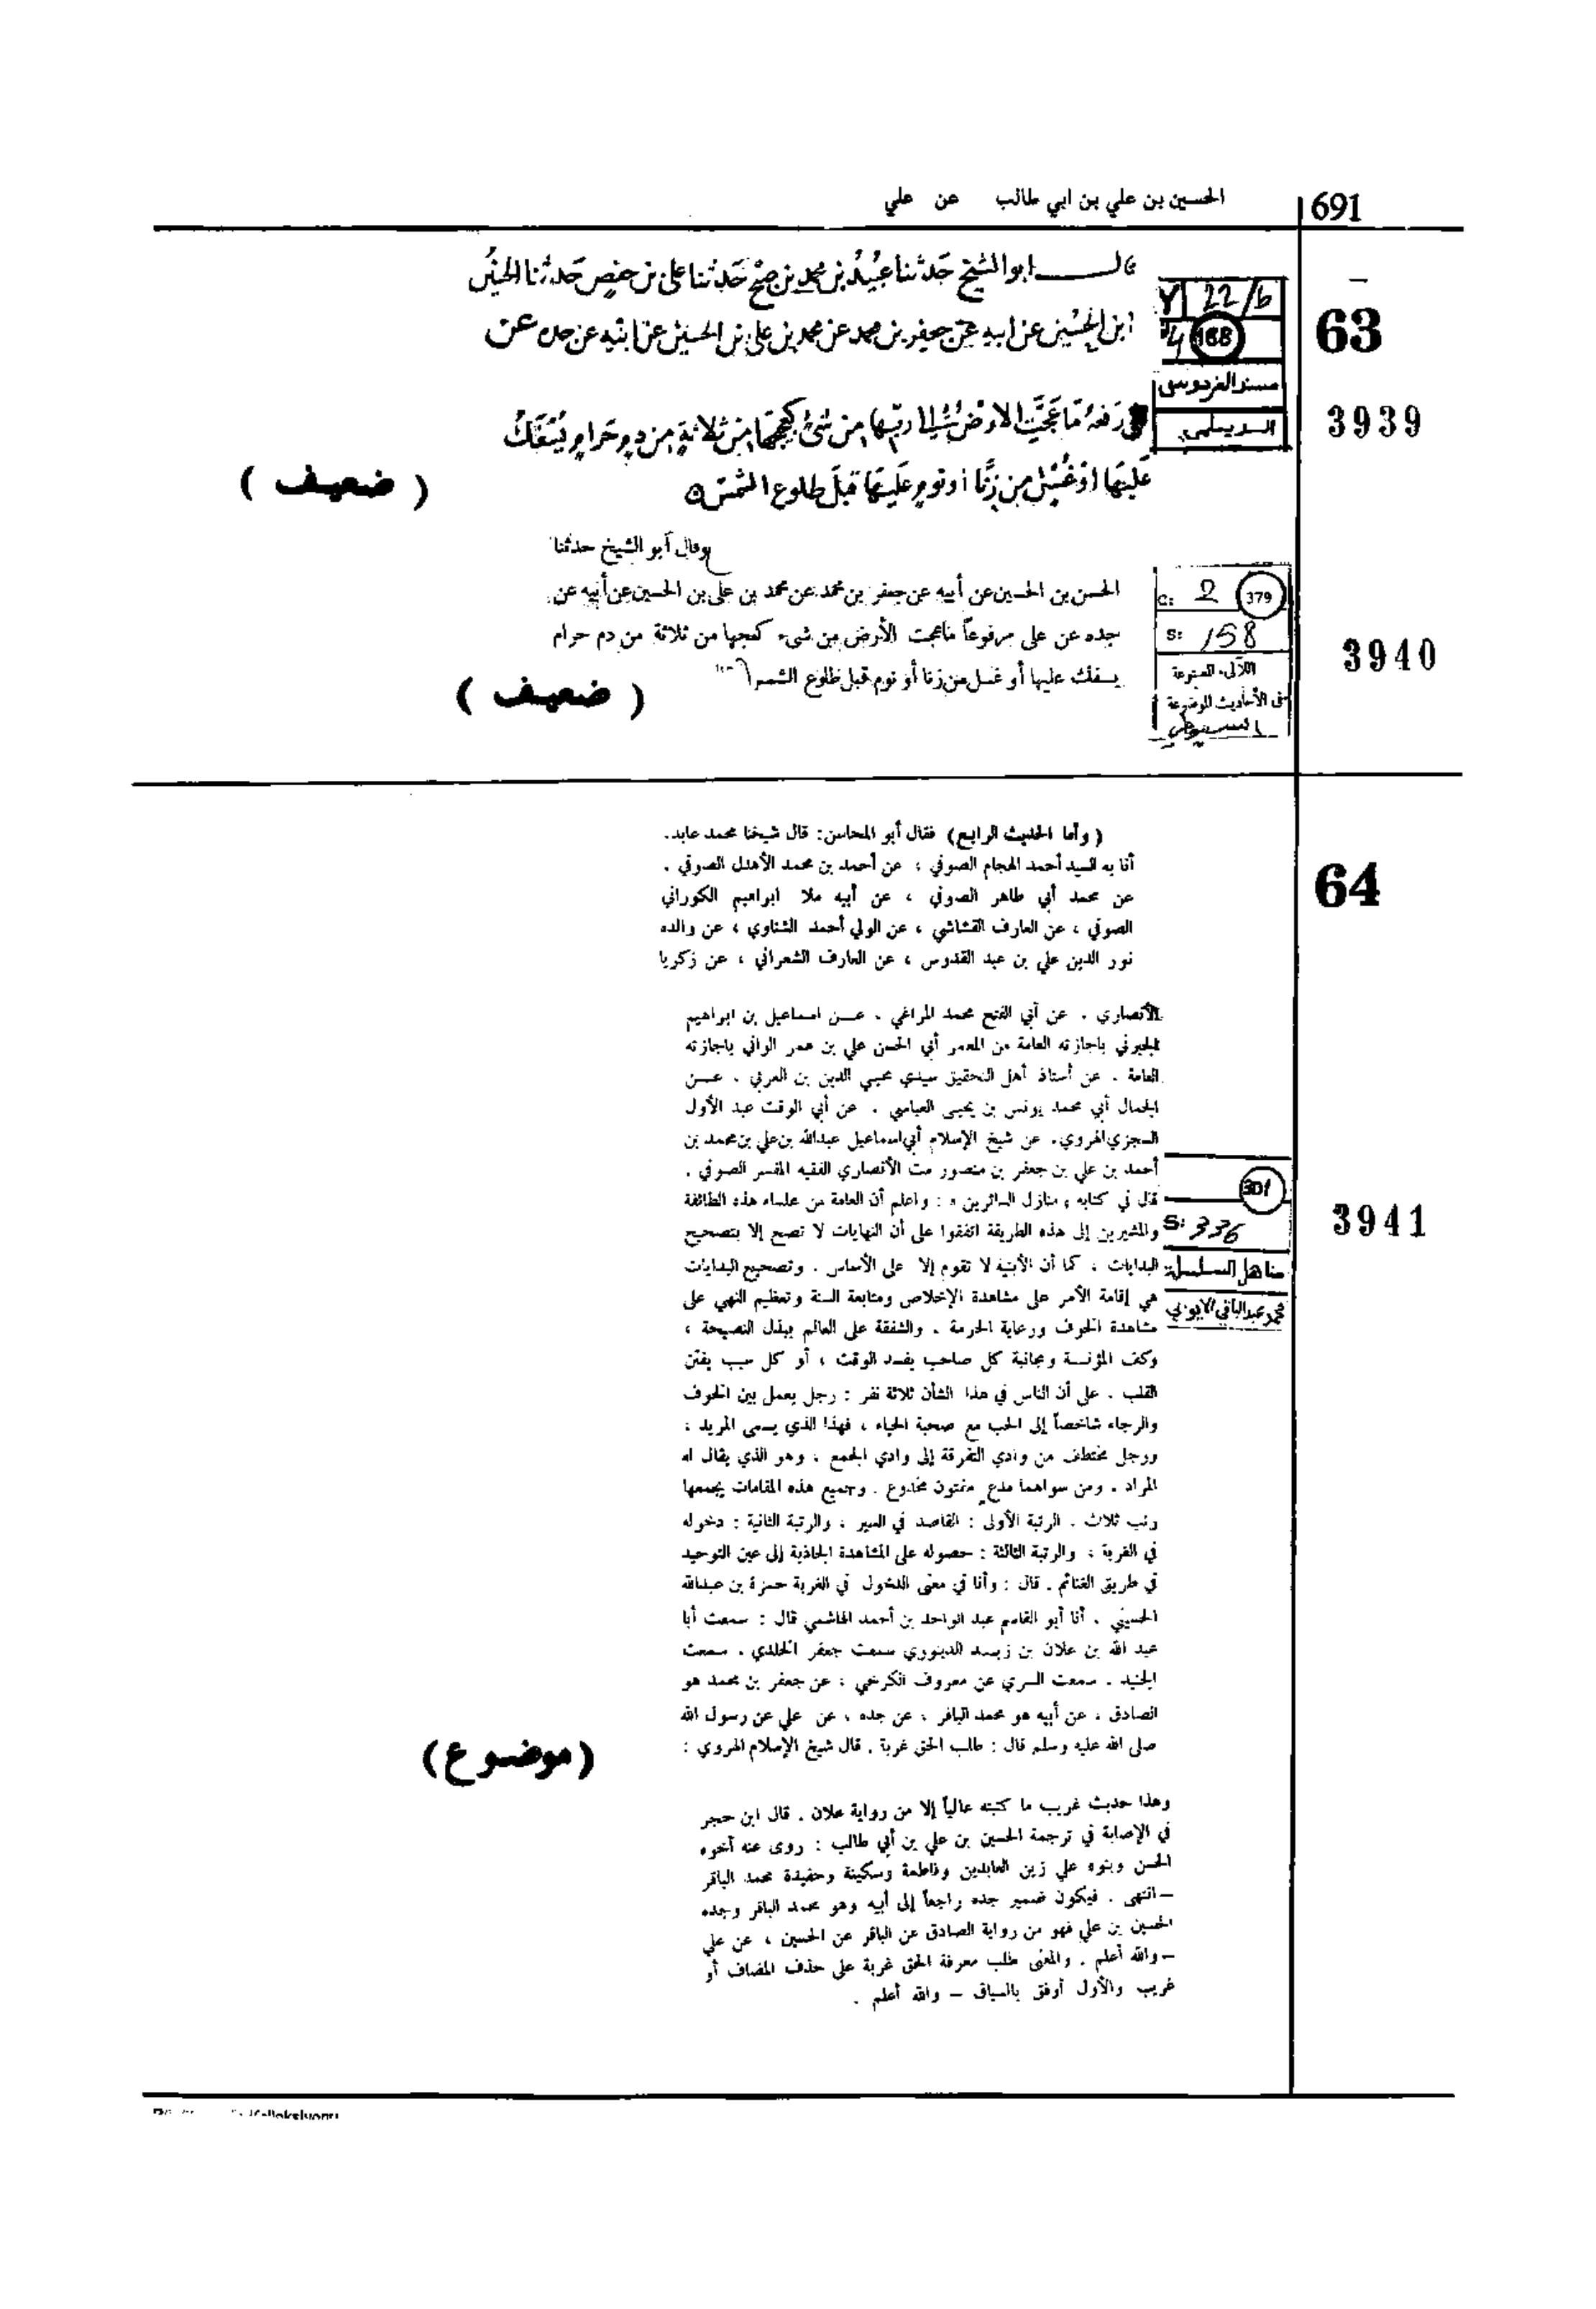 الحسين بن علي بن ابي طالب عن علي
691
قال ابو الشيخ حدثنا عبيد بن محمد بن صبح حدثنا علي بن حفص حدثنا الحسن
ابن الحسين عن ابيه عن جعفر بن محمد عن محمد بن علي بن الحسين عن ابيه عن جده عن
رفعه ما عجت الارض الى ربها من شئ كعجها من ثلاثة من دم حرام يسفك
عليها او غسل من زنا او نوم عليها قبل طلوع الشمس
( ضعيف )
Y 22/b
4 168
مسند الفردوس
الديلمي
63
3939
وقال أبو الشيخ حدثنا
الحسن بن الحسين عن أبيه عن جعفر بن محمد عن محمد بن على بن الحسين عن أبيه عن
جده عن على مرفوعاً ماعجت الأرض من شىء كعجها من ثلاثة من دم حرام
يسفك عليها أو غسل من زنا أو نوم قبل طلوع الشمس
( ضعيف )
C: 2 379
S: 158
اللآلىء المصنوعة
فى الأحاديث الموضوعة
السيوطي
3940
( وأما الحديث الرابع) فقال أبو المحاسن: قال شيخنا محمد عابد.
أنا به السيد أحمد الهجام الصوفي ، عن أحمد بن محمد الأهدل الصوفي .
عن محمد أبي طاهر الصوفي ، عن أبيه ملا ابراهيم الكوراني
الصوفي ، عن العارف القشاشي ، عن الولي أحمد الشناوي ، عن والده
نور الدين علي بن عبد القدوس ، عن العارف الشعراني ، عن زكريا
الأنصاري . عن أبي الفتح محمد المراغي . عن اسماعيل بن ابراهيم
الجبرتي باجازته العامة من المعمر أبي الحسن علي بن عمر الواني باجازته
العامة . عن أستاذ أهل التحقيق سيدي محيي الدين بن العربي . عن
الجمال أبي محمد يونس بن يحيى العباسي . عن أبي الوقت عبد الأول
السجزي الهروي. عن شيخ الإسلام أبي اسماعيل عبدالله بن علي بن محمد بن
أحمد بن علي بن جعفر بن منصور مت الأنصاري الفقيه المفسر الصوفي .
قال في كتابه « منازل السائرين » : واعلم أن العامة من علماء هذه الطائفة
والمشيرين إلى هذه الطريقة اتفقوا على أن النهايات لا تصح إلا بتصحيح
البدايات ، كما أن الأبنية لا تقوم إلا على الأساس . وتصحيح البدايات
هي إقامة الأمر على مشاهدة الإخلاص ومتابعة السنة وتعظيم النهي على
مشاهدة الخوف ورعاية الحرمة . والشفقة على العالم ببذل النصيحة ،
وكف المؤنسة ومجانبة كل صاحب يفسد الوقت ، أو كل سبب يفتن
القلب . على أن الناس في هذا الشأن ثلاثة نفر : رجل يعمل بين الخوف
والرجاء شاخصاً إلى الحب مع صحبة الحياء ، فهذا الذي يسمى المريد ،
ورجل مختطف من وادي التفرقة إلى وادي الجمع ، وهو الذي يقال له
المراد . ومن سواهما مدع مفتون مخدوع . وجميع هذه المقامات يجمعها
رتب ثلاث . الرتبة الأولى : القاصد في السير ، والرتبة الثانية : دخوله
في الغربة ، والرتبة الثالثة : حصوله على المشاهدة الجاذبة إلى عين التوحيد
في طريق الفنائم . قال : وأنا في معنى الدخول في الغربة حمزة بن عبدالله
الحسيني . أنا أبو القاسم عبد الواحد بن أحمد الهاشمي قال : سمعت أبا
عبد الله بن علان بن زيد الدينوري سمعت جعفر الخلدي . سمعت
الجنيد . سمعت السري عن معروف الكرخي ، عن جعفر بن محمد هو
الصادق ، عن أبيه هو محمد الباقر ، عن جده ، عن علي عن رسول الله
صلى الله عليه وسلم قال : طلب الحق غربة . قال شيخ الإسلام الهروي :
(موضوع)
وهذا حديث غريب ما كتبته عالياً إلا من رواية علان . قال ابن حجر
في الإصابة في ترجمة الحسين بن علي بن أبي طالب : روى عنه أخوه
الحسن وبنوه علي زين العابدين وفاطمة وسكينة وحفيدة محمد الباقر
– انتهى . فيكون ضمير جده راجعاً إلى أبيه وهو محمد الباقر وجده
الحسين بن علي فهو من رواية الصادق عن الباقر عن الحسين ، عن علي
– والله أعلم . والمعنى طلب معرفة الحق غربة على حذف المضاف أو
غريب والأول أوفق بالسياق – والله أعلم .
301
S: 336
مناهل السلسلة
محمد عبد الباقي الايوبي
64
3941